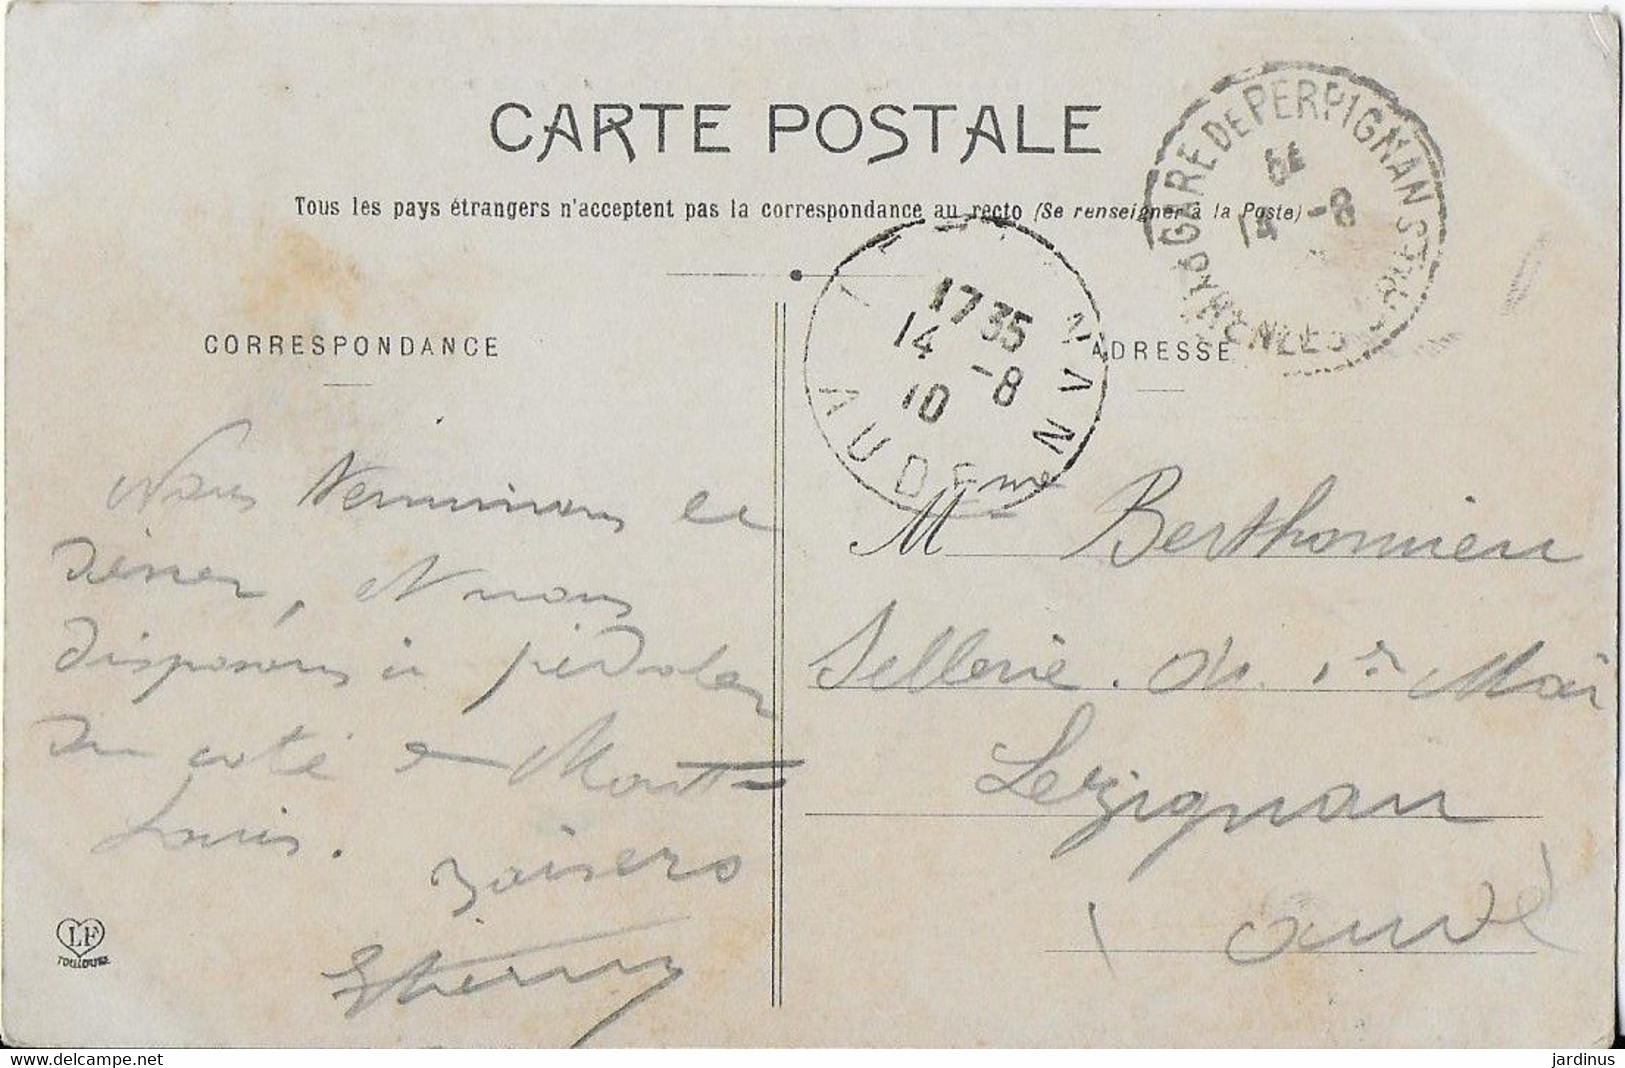 CARTE POSTALE
Tous les pays étrangers n'acceptent pas la correspondance au recto (Se renseigner à la Poste)
GARE DE PERPIGNAN
PYRENEES
14 -8
17 35
14 -8
10
AUDE
CORRESPONDANCE
ADRESSE
Nous terminons le
diner, et nous
disposons à pédaler
du coté de Mont-
Louis.
Baisers
Etienne
Mme Berthomieu
Sellerie. du 1er Mai
Lezignan
(Aude)
LF
TOULOUSE
delcampe.net
jardinus